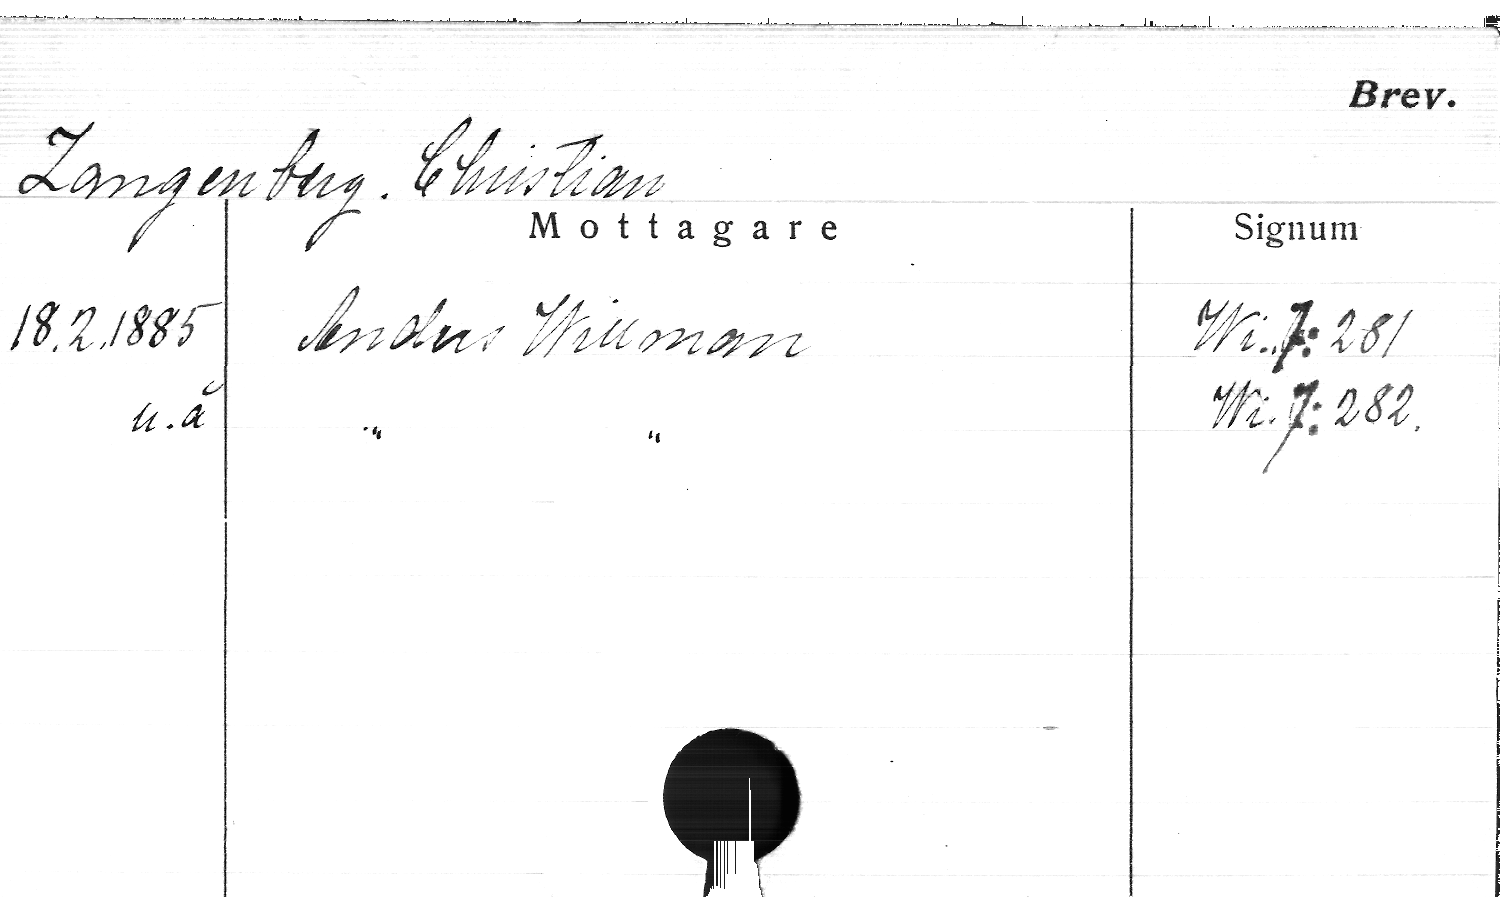 Brev.
Zangenberg. Christian
Mottagare Signum
18.2.1885 Anders Willman Wi. 7: 281
u.å " " Wi. 7: 282.